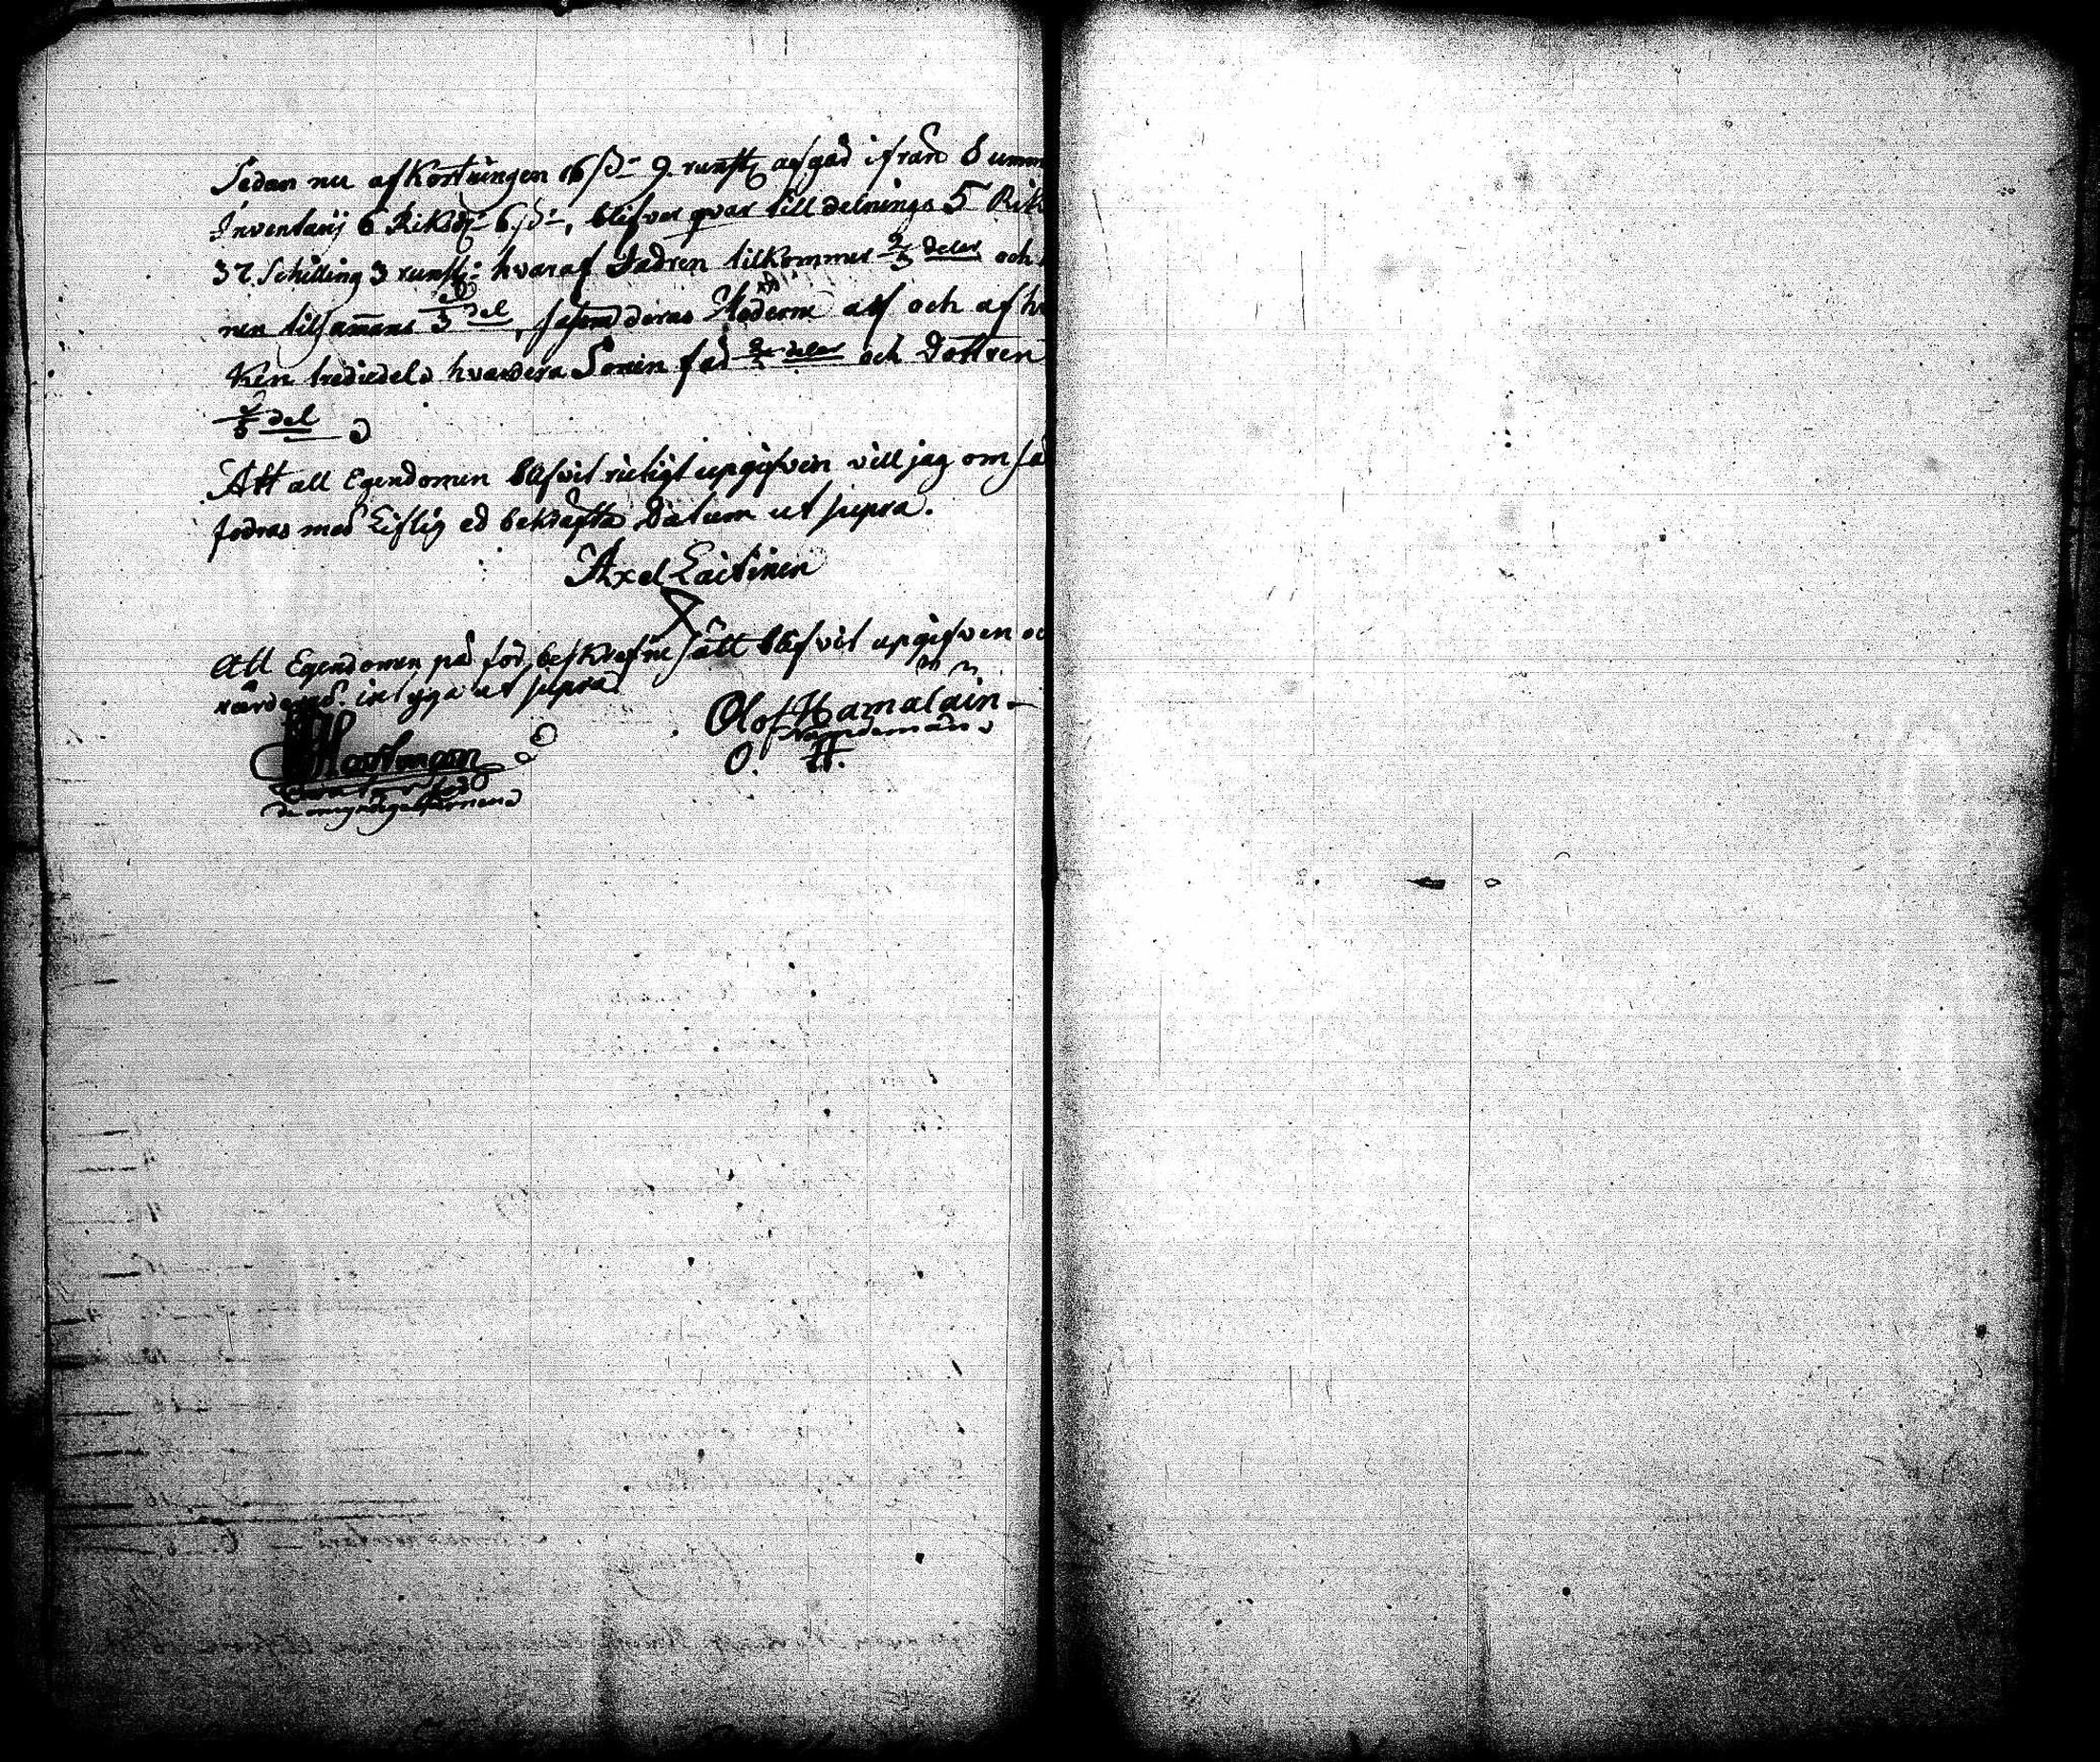 Sedan nu afkortningen 16 ß 9 runst. afgåd ifrån Summ
Inventarij 6 Riksd. 6 ß, blifver qvar till delnings 5 Rik
37 Schilling 3 runst: hvaraf Fadren tilkommer 2/3 delar och
nen tilsamans 1/3 del, såsom deras Moderm arf och af hv
ken trediedels hvardera Sonen får 2/5 delar och Dottren
1/5 del
Att all Egendomen blifvit ricktigt upgifven vill jag om så
fodras med Liflig ed bekräfta Datum ut supra.
Axel Laitinen
All Egendomen på för beskrefne sätt blifvit upgifven oc
värderad. intyga ut supra
Hartman
Olof Hämäläin
Nämdeman
O. H.